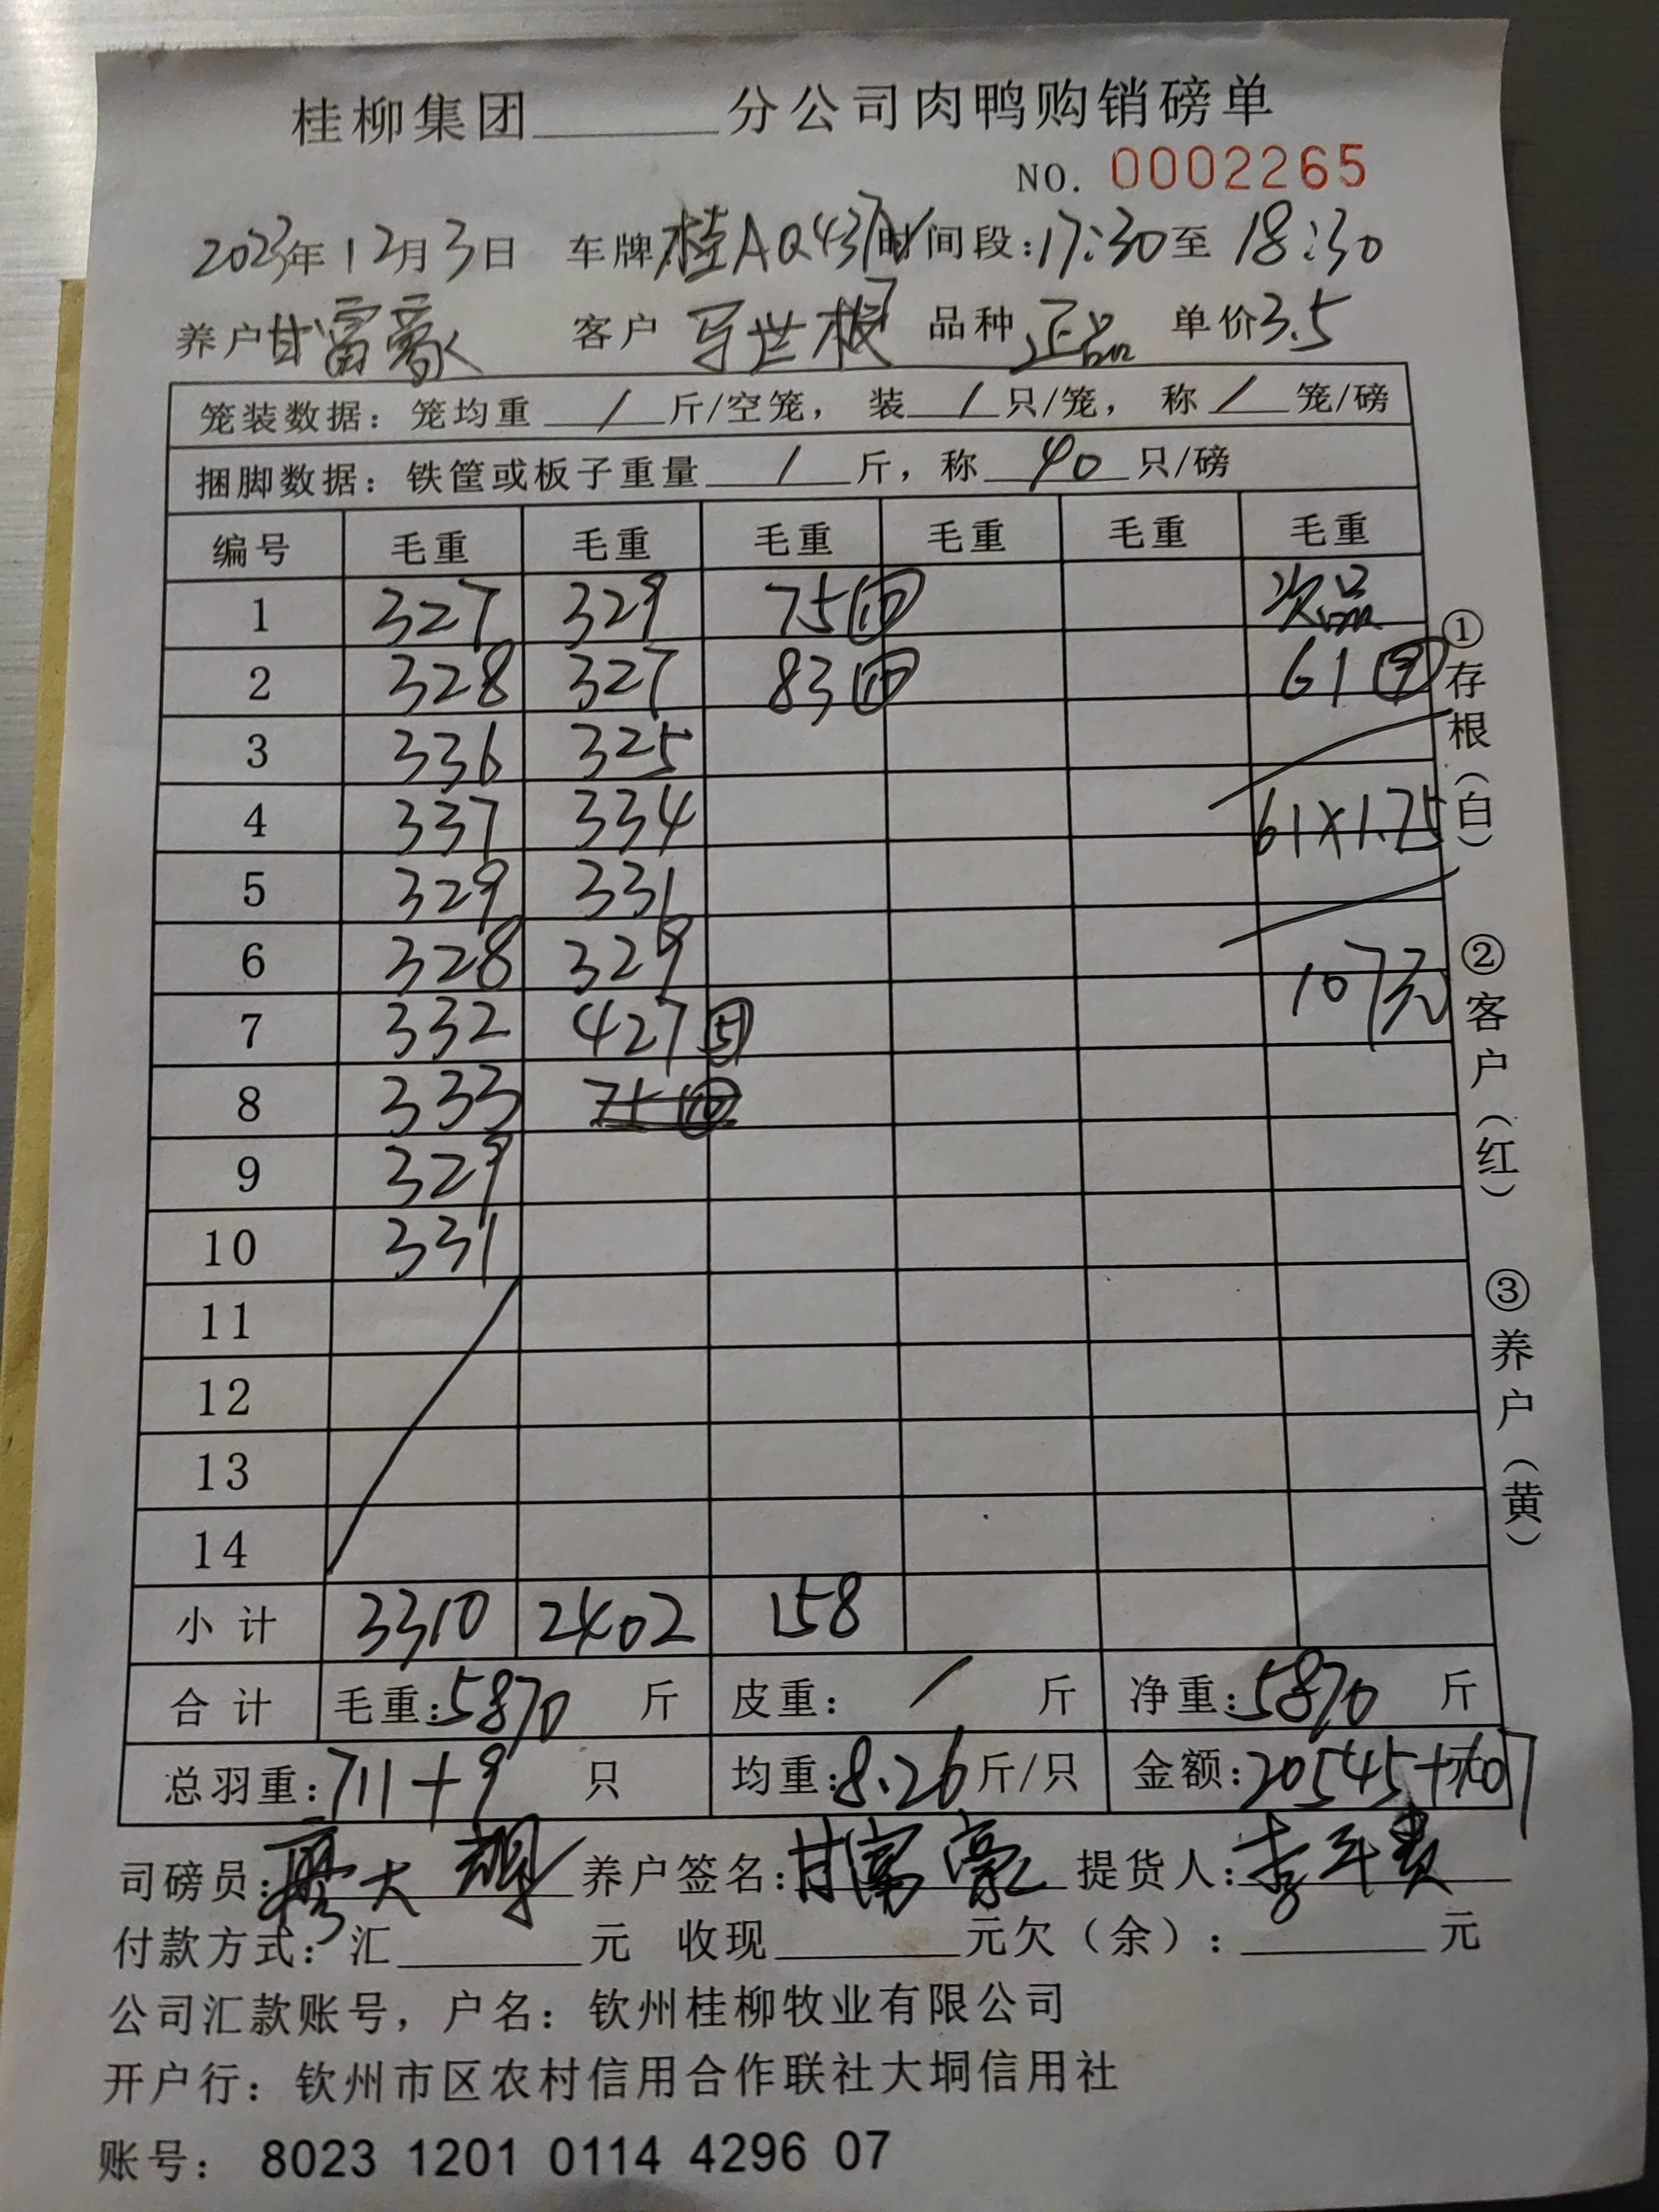 桂柳集团______分公司肉鸭购销磅单
NO. 0002265
2023年12月3日 车牌桂AQ437 时间段:17:30至18:30
养户甘富豪 客户 世根 品种 正品 单价3.5
笼装数据: 笼均重 / 斤/空笼, 装 / 只/笼, 称 / 笼/磅
捆脚数据: 铁筐或板子重量 / 斤, 称 40 只/磅
编号 毛重 毛重 毛重 毛重 毛重 毛重
1 327 329 75⑩ 次品
2 328 327 83⑩ 61⑨
3 336 325
4 337 334 61×1.75
5 329 331
6 328 329 107元
7 332 427 51
8 333 75⑩
9 329
10 331
11
12
13
14
小计 3310 2402 158
合计 毛重:5870 斤 皮重: / 斤 净重:5870 斤
总羽重:711+9 只 均重:8.26斤/只 金额:20545+元107
司磅员: 大 养户签名:甘富豪 提货人:李 贵
付款方式: 汇______元 收现______元欠(余):______元
公司汇款账号, 户名: 钦州桂柳牧业有限公司
开户行: 钦州市区农村信用合作联社大垌信用社
账号: 8023 1201 0114 4296 07
①存根(白) ②客户(红) ③养户(黄)